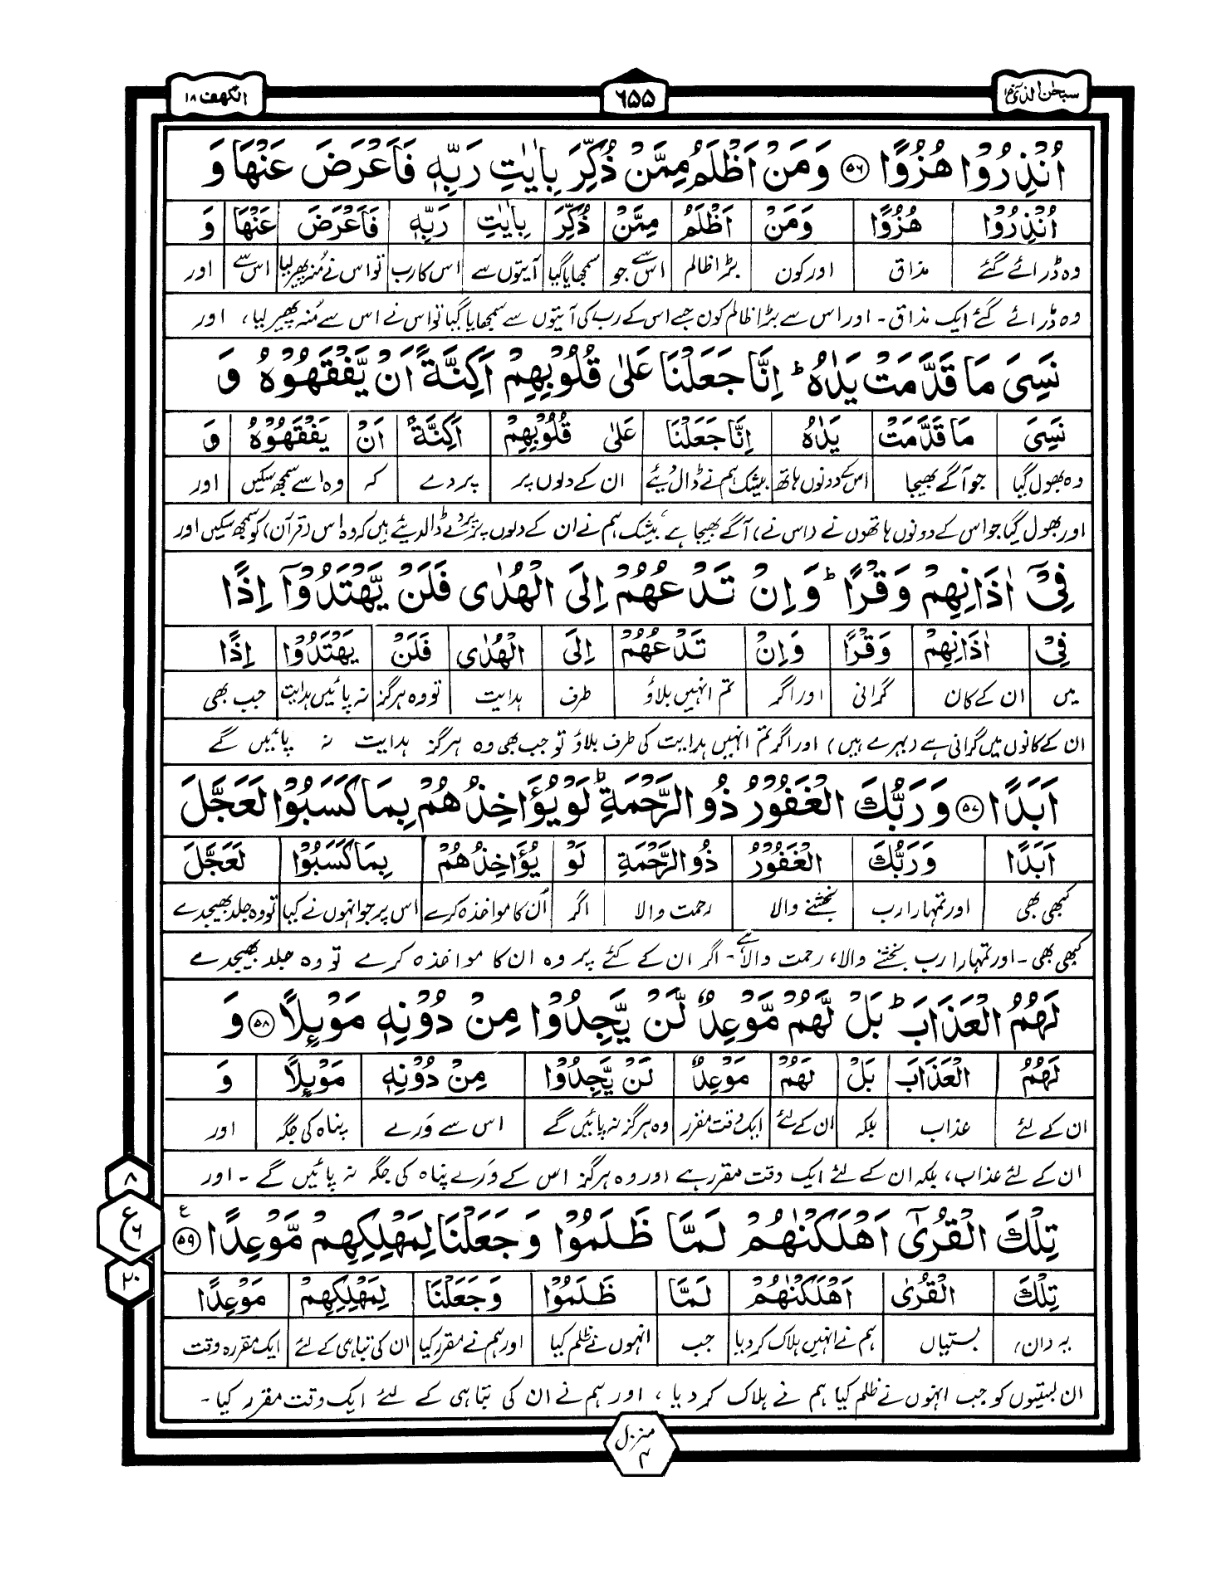 سبحٰن الذی
٦٥٥
الکهف ۱۸
اُنْذِرُوْا هُزُوًا ﴿٥٦﴾ وَمَنْ اَظْلَمُ مِمَّنْ ذُكِّرَ بِاٰیٰتِ رَبِّهٖ فَاَعْرَضَ عَنْهَا وَ
اُنْذِرُوْا هُزُوًا وَمَنْ اَظْلَمُ مِمَّنْ ذُكِّرَ بِاٰیٰتِ رَبِّهٖ فَاَعْرَضَ عَنْهَا وَ
وہ ڈرائے گئے مذاق اور کون بڑا ظالم اس سے جو سمجھایا گیا آیتوں سے اس کا رب تو اس نے منہ پھیر لیا اس سے اور
وہ ڈرائے گئے ایک مذاق۔ اور اس سے بڑا ظالم کون جسے اس کے رب کی آیتوں سے سمجھایا گیا تو اس نے اس سے مُنہ پھیر لیا، اور
نَسِیَ مَا قَدَّمَتْ یَدٰهُ ؕ اِنَّا جَعَلْنَا عَلٰی قُلُوْبِهِمْ اَكِنَّةً اَنْ یَّفْقَهُوْهُ وَ
نَسِیَ مَا قَدَّمَتْ یَدٰهُ اِنَّا جَعَلْنَا عَلٰی قُلُوْبِهِمْ اَكِنَّةً اَنْ یَفْقَهُوْهُ وَ
وہ بھول گیا جو آگے بھیجا اس کے دونوں ہاتھ بیشک ہم نے ڈال دیئے ان کے دلوں پر پردے کہ وہ اسے سمجھ سکیں اور
اور بھول گیا جو اس کے دونوں ہاتھوں نے (اس نے) آگے بھیجا ہے، بیشک ہم نے ان کے دلوں پر پردے ڈالدیئے ہیں کہ وہ اس (قرآن) کو سمجھ سکیں اور
فِیْۤ اٰذَانِهِمْ وَقْرًا ؕ وَاِنْ تَدْعُهُمْ اِلَی الْهُدٰی فَلَنْ یَّهْتَدُوْۤا اِذًا
فِیْۤ اٰذَانِهِمْ وَقْرًا وَاِنْ تَدْعُهُمْ اِلَی الْهُدٰی فَلَنْ یَهْتَدُوْا اِذًا
میں ان کے کان گرانی اور اگر تم انہیں بلاؤ طرف ہدایت تو وہ ہرگز نہ پائیں ہدایت جب بھی
ان کے کانوں میں گرانی ہے (بہرے ہیں) اور اگر تم انہیں ہدایت کی طرف بلاؤ تو جب بھی وہ ہرگز ہدایت نہ پائیں گے
اَبَدًا ﴿٥٧﴾ وَرَبُّكَ الْغَفُوْرُ ذُو الرَّحْمَةِ ؕ لَوْ یُؤَاخِذُهُمْ بِمَا كَسَبُوْا لَعَجَّلَ
اَبَدًا وَرَبُّكَ الْغَفُوْرُ ذُو الرَّحْمَةِ لَوْ یُؤَاخِذُهُمْ بِمَا كَسَبُوْا لَعَجَّلَ
کبھی بھی اور تمہارا رب بخشنے والا رحمت والا اگر ان کا مواخذہ کرے اس پر جو انہوں نے کیا تو وہ جلد بھیجدے
کبھی بھی۔ اور تمہارا رب بخشنے والا، رحمت والا ہے۔ اگر ان کے کئے پر وہ ان کا مواخذہ کرے تو وہ جلد بھیجدے
لَهُمُ الْعَذَابَ ؕ بَلْ لَّهُمْ مَّوْعِدٌ لَّنْ یَّجِدُوْا مِنْ دُوْنِهٖ مَوْىِٕلًا ﴿٥٨﴾ وَ
لَهُمُ الْعَذَابَ بَلْ لَهُمْ مَوْعِدٌ لَنْ یَّجِدُوْا مِنْ دُوْنِهٖ مَوْىِٕلًا وَ
ان کے لئے عذاب بلکہ ان کے لئے ایک وقت مقرر وہ ہرگز نہ پائیں گے اس سے وَرے پناہ کی جگہ اور
ان کے لئے عذاب، بلکہ ان کے لئے ایک وقت مقرر ہے اور وہ ہرگز اس کے وَرے پناہ کی جگہ نہ پائیں گے۔ اور
تِلْكَ الْقُرٰۤی اَهْلَكْنٰهُمْ لَمَّا ظَلَمُوْا وَجَعَلْنَا لِمَهْلِكِهِمْ مَّوْعِدًا ﴿٥٩﴾ ع
تِلْكَ الْقُرٰی اَهْلَكْنٰهُمْ لَمَّا ظَلَمُوْا وَجَعَلْنَا لِمَهْلِكِهِمْ مَوْعِدًا
یہ (ان) بستیاں ہم نے انہیں ہلاک کر دیا جب انہوں نے ظلم کیا اور ہم نے مقرر کیا ان کی تباہی کے لئے ایک مقررہ وقت
ان بستیوں کو جب انہوں نے ظلم کیا ہم نے ہلاک کر دیا، اور ہم نے ان کی تباہی کے لئے ایک وقت مقرر کیا۔
۸
ع ٦
۲۰
منزل
۴